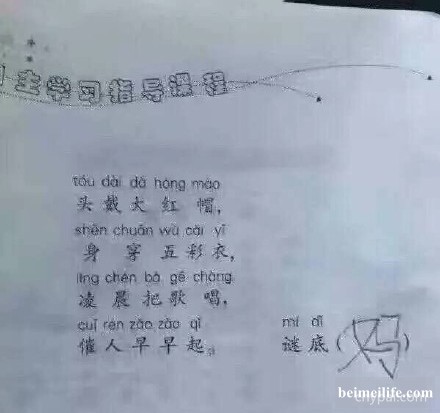 主学习指导课程
tóu dài dà hóng mào
头戴大红帽,
shēn chuān wǔ cǎi yī
身穿五彩衣,
líng chén bǎ gē chàng
凌晨把歌唱,
cuī rén zǎo zǎo qǐ
催人早早起。
mí dǐ
谜底(妈)
cnypai.com
beimeilife.com